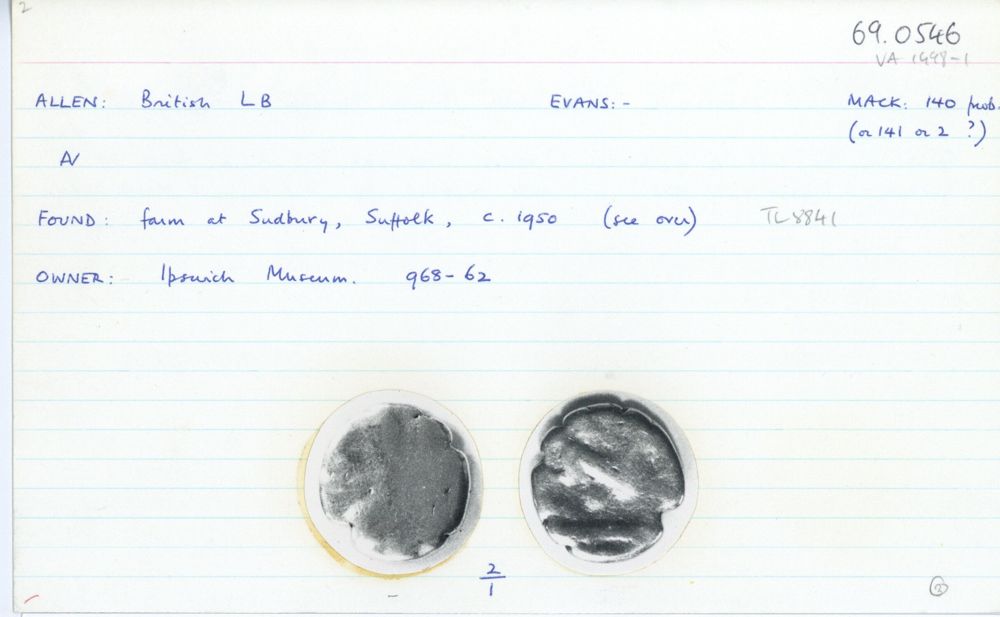 2
69.0546
VA 1498-1
ALLEN: British LB EVANS: - MACK: 140 prob.
(or 141 or 2 ?)
AV
FOUND: farm at Sudbury, Suffolk, c. 1950 (see over) TL 8841
OWNER: Ipswich Museum. 968-62
2
1
2